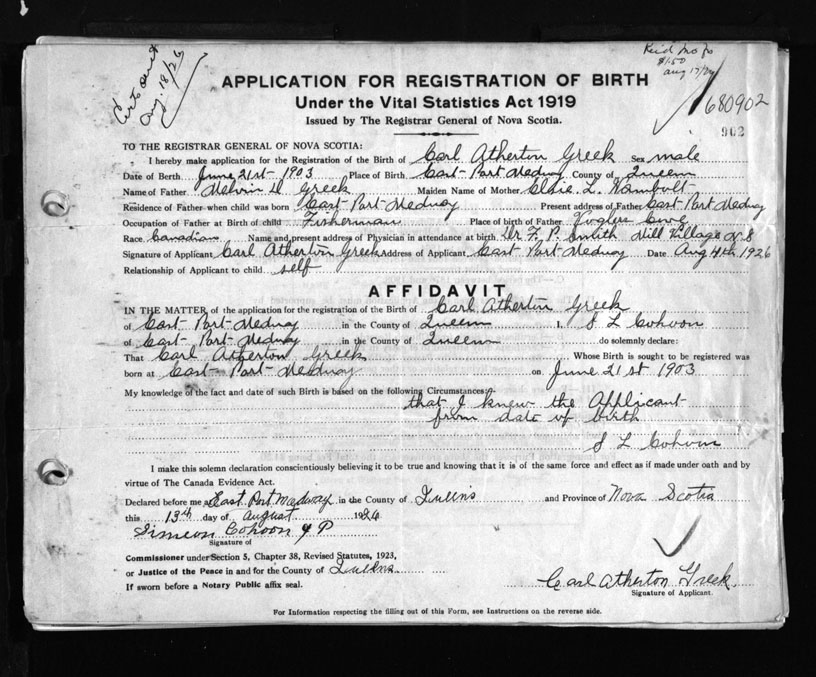 Aug. 18/26
$1.50
Aug 17/26
APPLICATION FOR REGISTRATION OF BIRTH
Under the Vital Statistics Act 1919
Issued by The Registrar General of Nova Scotia.
680902
902
TO THE REGISTRAR GENERAL OF NOVA SCOTIA:
I hereby make application for the Registration of the Birth of Carl Atherton Greek Sex male
Date of Birth June 21st 1903 Place of Birth East Port Medway County of Queens
Name of Father Melvin Greek Maiden Name of Mother L. Wambolt
Residence of Father when child was born East Port Medway Present address of Father East Port Medway
Occupation of Father at Birth of child Fisherman Place of birth of Father Voglers Cove
Race Canadian Name and present address of Physician in attendance at birth Dr F. P. Smith Mill Village N S
Signature of Applicant Carl Atherton Greek Address of Applicant East Port Medway Date Aug 4th 1926
Relationship of Applicant to child self
AFFIDAVIT
IN THE MATTER of the application for the registration of the Birth of Carl Atherton Greek
of East Port Medway in the County of Queens I, S L Cohoon
of East Port Medway in the County of Queens do solemnly declare:
That Carl Atherton Greek Whose Birth is sought to be registered was
born at East Port Medway on June 21st 1903
My knowledge of the fact and date of such Birth is based on the following Circumstances:
that I knew the Applicant
from date of birth
S L Cohoon
I make this solemn declaration conscientiously believing it to be true and knowing that it is of the same force and effect as if made under oath and by
virtue of The Canada Evidence Act.
Declared before me at East Port Medway in the County of Queens and Province of Nova Scotia
this 13th day of August 1926
Simeon Cohoon J P
Signature of
Commissioner under Section 5, Chapter 38, Revised Statutes, 1923,
or Justice of the Peace in and for the County of Queens
If sworn before a Notary Public affix seal.
Carl Atherton Greek
Signature of Applicant.
For Information respecting the filling out of this Form, see Instructions on the reverse side.